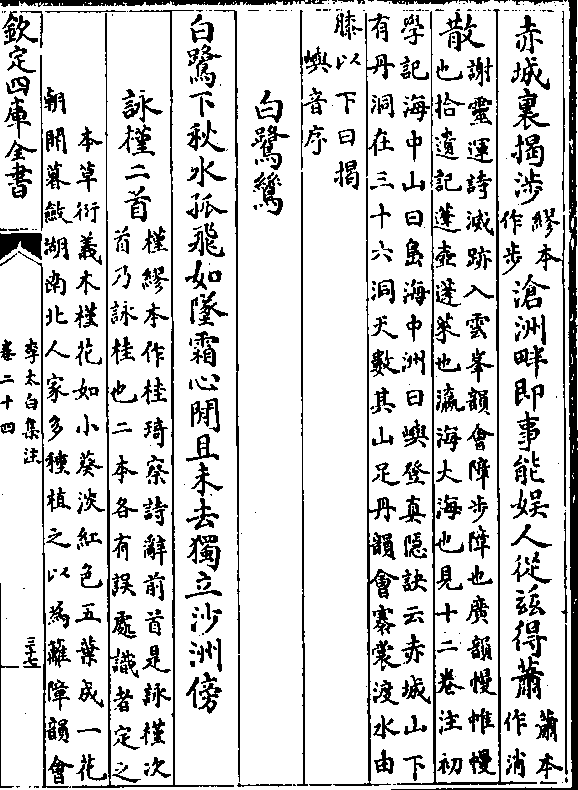 赤城裏揭渉繆本作步滄洲畔即事能娱人從兹得蕭蕭本作消
散謝靈運詩滅跡入雲峯韻會障步障也廣韻幔帷幔
也拾遺記蓬壺蓬萊也瀛海大海也見十二卷注初
學記海中山曰島海中洲曰嶼登真隱訣云赤城山下
有丹洞在三十六洞天數其山足丹韻會褰裳渡水由
膝以下曰揭
嶼音序
白鷺鷥
白鷺下秋水孤飛如墜霜心閒且未去獨立沙洲傍
詠槿二首槿繆本作桂琦察詩辭前首是詠槿次
首乃詠桂也二本各有誤處識者定之
本草衍義木槿花如小葵淡紅色五葉成一花
朝開暮斂湖南北人家多種植之以為籬障韻會
欽定四庫全書
李太白集注
卷二十四
三十七